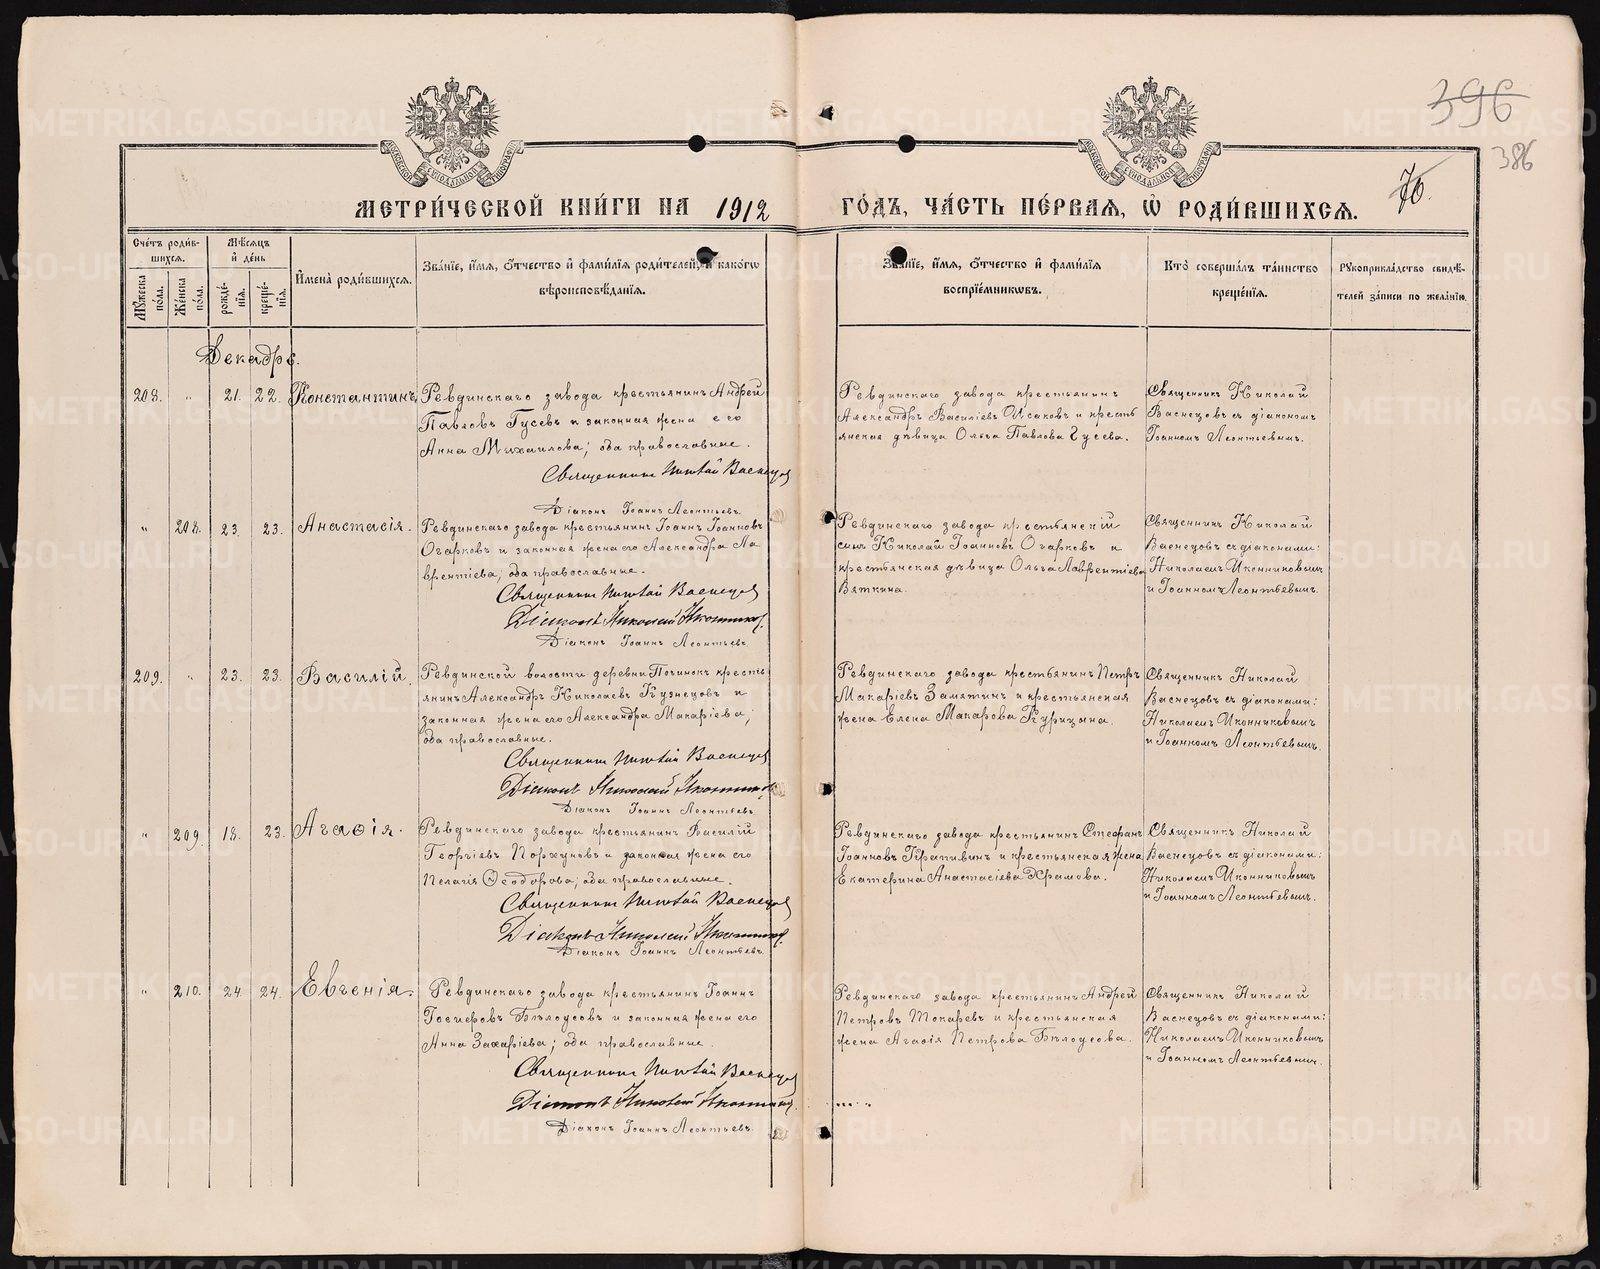 396
386
70.
МЕТРИ́ЧЕСКОЙ КНИ́ГИ НА 1912 ГО́ДЪ, ЧА́СТЬ ПЕ́РВАЯ, Ѡ РОДИ́ВШИХСЯ.
Сче́тъ роди́в-
шихся.
Мѣ́сяцъ
и҆ де́нь
Мꙋ́жеска по́ла.
Же́нска по́ла.
рожде́-
нїѧ.
креще́-
нїѧ.
И҆мена̀ роди́вшихся.
Зва́нїе, и҆́мя, ѻ҆́тчество и҆ фами́лїя роди́телей, и҆ како́гѡ
вѣроисповѣ́данїя.
Зва́нїе, и҆́мя, ѻ҆́тчество и҆ фами́лїя
воспрїе́мникѡвъ.
Кто̀ соверша́лъ та́инство
креще́нїя.
Рꙋкоприкла́дство свидѣ́-
телей за́писи по жела́нїю.
Декабрь.
208. " 21. 22. Константинъ
Ревдинскаго завода крестьянинъ Андрей
Павловъ Гусевъ и законная жена его
Анна Михаилова; оба православные.
Священникъ Николай Васнецовъ
Дiаконъ Iоаннъ Леонтьевъ.
Ревдинскаго завода крестьянинъ
Александръ Василiевъ Исаковъ и кресть
янская дѣвица Ольга Павлова Гусева.
Священникъ Николай
Васнецовъ съ дiакономъ
Iоанномъ Леонтьевымъ.
" 208. 23. 23. Анастасiя.
Ревдинскаго завода крестьянинъ Iоаннъ Iоанновъ
Огарковъ и законная жена его Александра Ла
врентiева; оба православные.
Священникъ Николай Васнецовъ
Дiаконъ Николай Иконниковъ.
Дiаконъ Iоаннъ Леонтьевъ.
Ревдинскаго завода крестьянскiй
сынъ Николай Iоанновъ Огарковъ и
крестьянская дѣвица Ольга Лаврентiева
Вяткина.
Священникъ Николай
Васнецовъ съ дiаконами:
Николаемъ Иконниковымъ
и Iоанномъ Леонтьевымъ.
209. " 23. 23. Василiй.
Ревдинской волости деревни Починокъ кресть
янинъ Александръ Николаевъ Кузнецовъ и
законная жена его Александра Макарiева;
оба православные.
Священникъ Николай Васнецовъ
Дiаконъ Николай Иконниковъ
Дiаконъ Iоаннъ Леонтьевъ.
Ревдинскаго завода крестьянинъ Петръ
Макарiевъ Замятинъ и крестьянская
жена Елена Макарова Курицына.
Священникъ Николай
Васнецовъ съ дiаконами:
Николаемъ Иконниковымъ
и Iоанномъ Леонтьевымъ.
" 209. 18. 23. Агаѳiя.
Ревдинскаго завода крестьянинъ Василiй
Георгiевъ Порхуновъ и законная жена его
Пелагiя Ѳеодорова; оба православные.
Священникъ Николай Васнецовъ
Дiаконъ Николай Иконниковъ.
Дiаконъ Iоаннъ Леонтьевъ.
Ревдинскаго завода крестьянинъ Стефанъ
Iоанновъ Крапивинъ и крестьянская жена
Екатерина Анастасiева Храмова.
Священникъ Николай
Васнецовъ съ дiаконами:
Николаемъ Иконниковымъ
и Iоанномъ Леонтьевымъ.
" 210. 24. 24. Евгенiя.
Ревдинскаго завода крестьянинъ Iоаннъ
Госиеровъ Бѣлоусовъ и законная жена его
Анна Захарiева; оба православные.
Священникъ Николай Васнецовъ
Дiаконъ Николай Иконниковъ.
Дiаконъ Iоаннъ Леонтьевъ.
Ревдинскаго завода крестьянинъ Андрей
Петровъ Токаревъ и крестьянская
жена Агаѳiя Петрова Бѣлоусова.
Священникъ Николай
Васнецовъ съ дiаконами:
Николаемъ Иконниковымъ
и Iоанномъ Леонтьевымъ.
METRIKI.GASO-URAL.RU